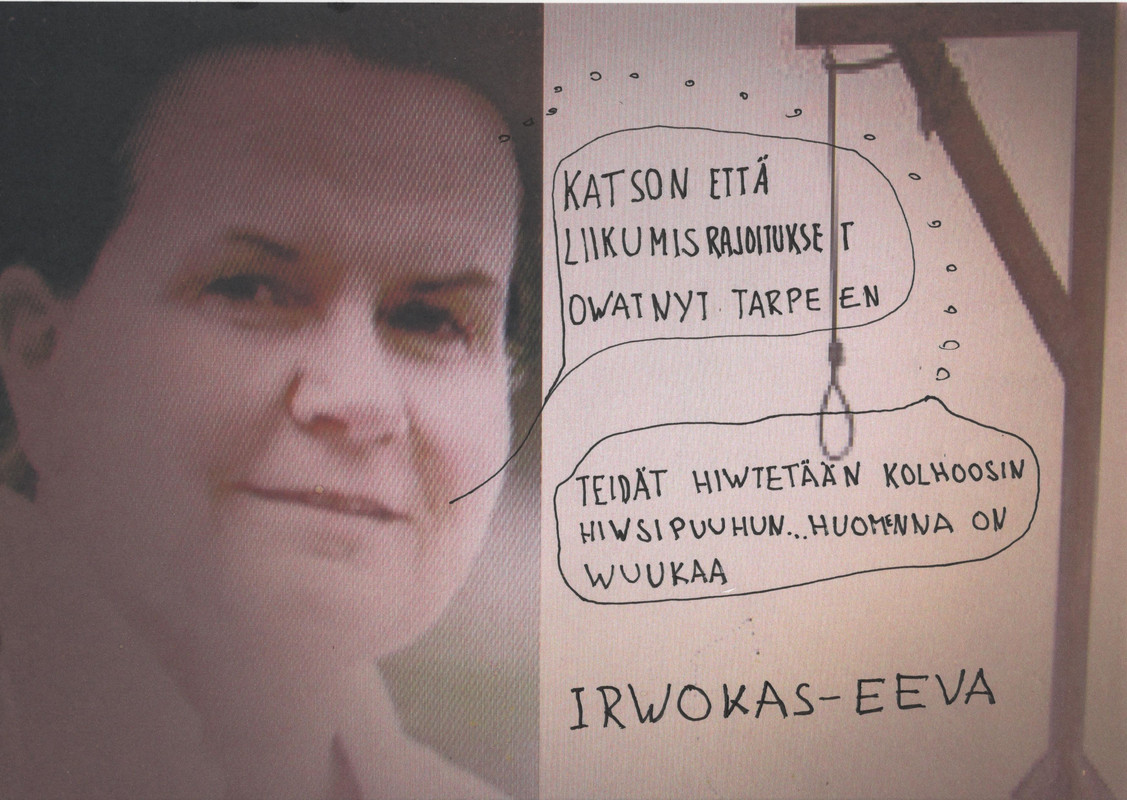 KATSON ETTÄ
LIIKUMISRAJOITUKSET
OWAT NYT TARPEEN
TEIDÄT HIWTETÄÄN KOLHOOSIN
HIWSIPUUHUN...HUOMENNA ON
WUUKAA
IRWOKAS-EEVA